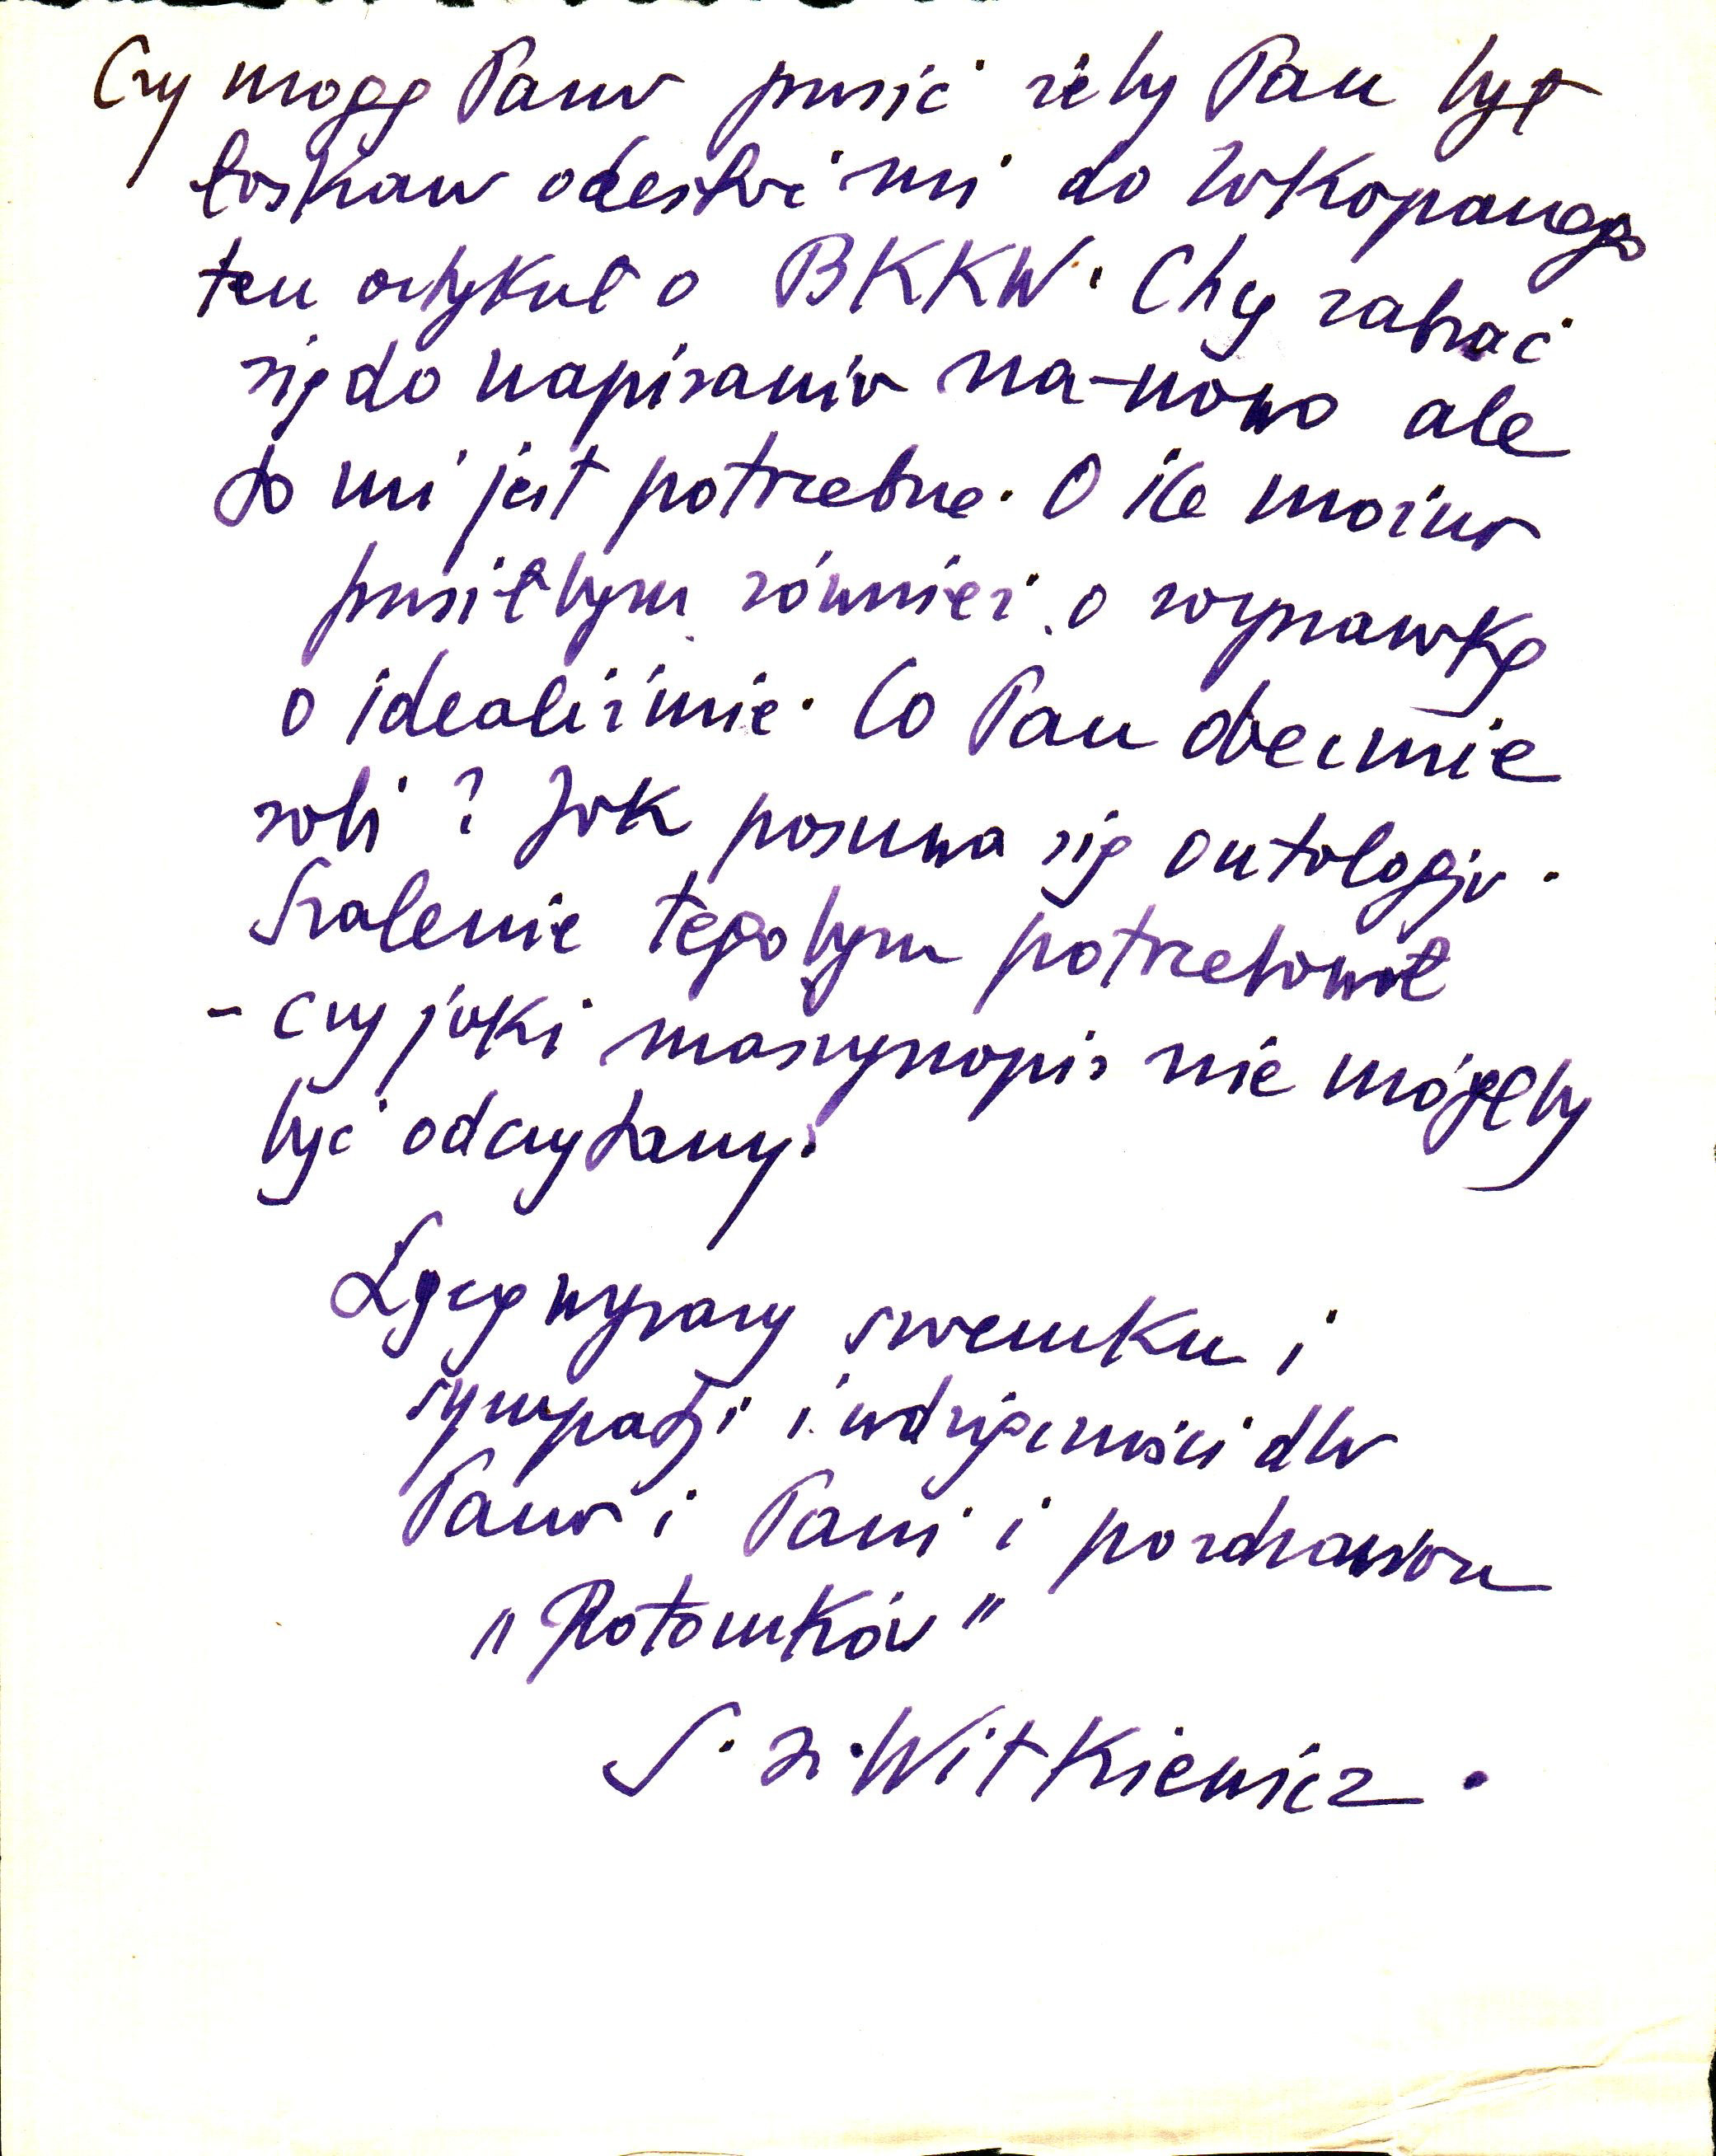 Czy mogę Pana prosić żeby Pan był
łaskaw odesłać mi do Zakopanego
ten artykuł o BKKW. Chcę zabrać
się do napisania na-nowo ale
to mi jest potrzebne. O ile można
prosiłbym również o rozprawkę
o idealiźmie. Co Pan obecnie
robi? Jak posuwa się ontologja.
Szalenie tegobym potrzebował
- czy jaki maszynopis nie mógłby
być odczytany.
Łączę wyrazy szacunku i
sympatji i wdzięczności dla
Pana i Pani i pozdrawiam
„Rotomków"
S. I. Witkiewicz.